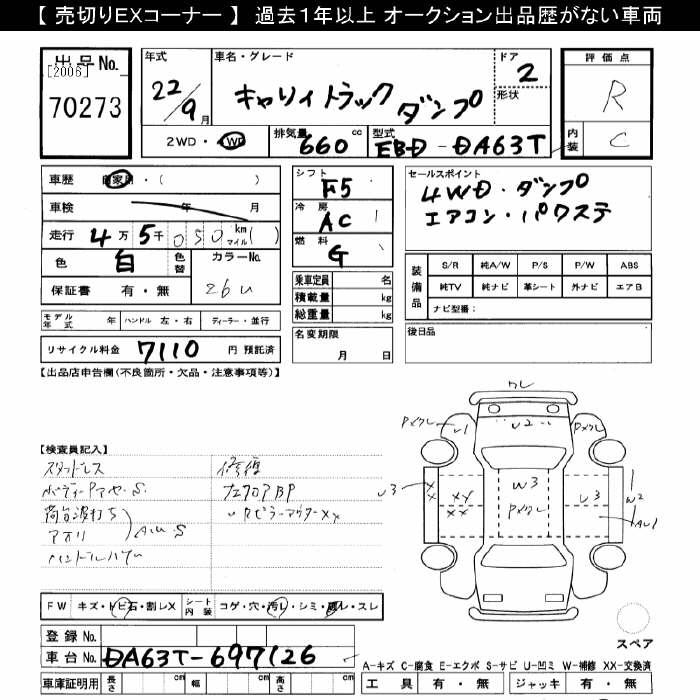 【 売切りEXコーナー 】 過去1年以上 オークション出品歴がない車両
出品No.
[2006]
70273
年式
22/9月
車名・グレード
キャリイトラック ダンプ
ドア
2
形状
評価点
R
内装
C
2WD・4WD
排気量 660 cc
型式 EBD-DA63T
車歴 自家用・( )
車検 年 月
走行 4万5千050 km マイル( )
色 白 色替
カラーNo. 26U
保証書 有・無
シフト F5
冷房 AC
燃料 G
乗車定員 名
積載量 kg
総重量 kg
セールスポイント
4WD・ダンプ
エアコン・パワステ
装備品
S/R 純A/W P/S P/W ABS
純TV 純ナビ 革シート 外ナビ エアB
ナビ型番:
モデル年式 年 ハンドル 左・右 ディーラー・並行
リサイクル料金 7110 円 預託済
名変期限
月 日
後日品
【出品店申告欄(不良箇所・欠品・注意事項等)】
【検査員記入】
スタッドレス
修復
荷台波打ち
アオリ
AUS
左フロアBP
クレ
Pメクレ
U1
U2
Pメクレ
U3
XX
XY
XX
W3
Pメクレ
U3
W2
AU1
FW キズ・トビ石・割レX
シート内装 コゲ・穴・汚レ・シミ・破レ・スレ
登録No.
車台No. DA63T-697126
車庫証明用 長さ cm 幅 cm 高さ cm
スペア
A-キズ C-腐食 E-エクボ S-サビ U-凹ミ W-補修 XX-交換済
工具 有・無 ジャッキ 有・無